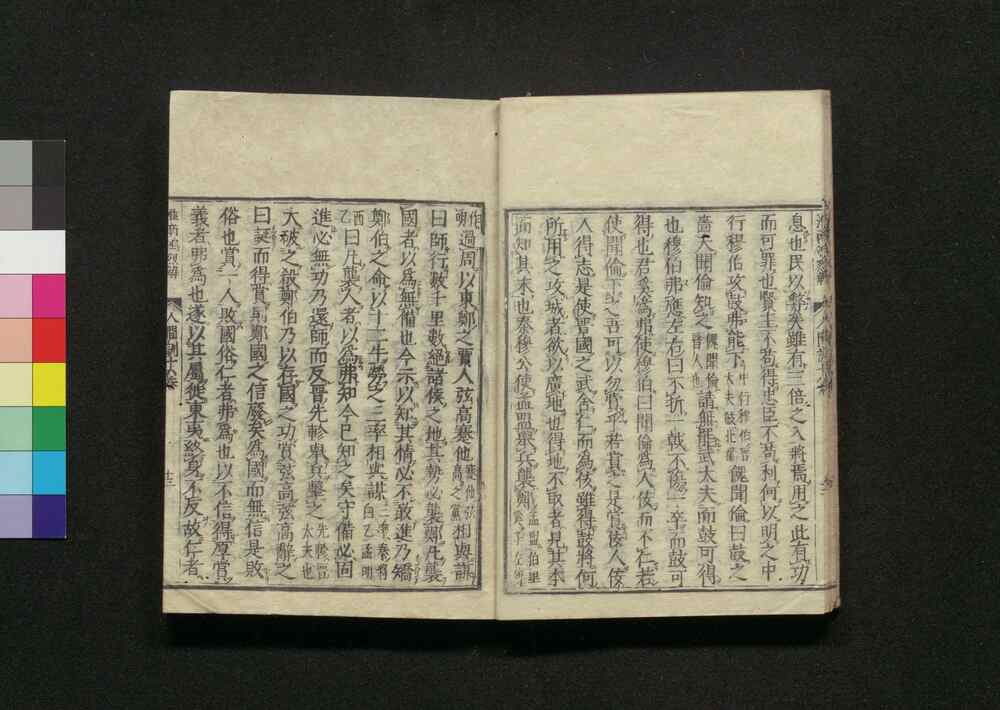 息也民以弊矣雖有三倍之入將焉用之此有功
而可罪也賢主不苟得忠臣不苟利何以明之中
行穆伯攻鼓弗能下中行穆伯晉大夫鼓北翟餽聞倫曰鼓之
嗇夫聞倫知之餽聞倫晉人也請無罷武大夫而鼓可得
也穆伯弗應左右曰不折一戟不傷一卒而鼓可
得也君奚爲弗使穆伯曰聞倫爲人佞而不仁若
使聞倫下之吾可以勿賞乎若賞之是賞佞人佞
人得志是使晉國之武舍仁而爲佞雖得鼓將何
所用之攻城者欲以廣地也得地不取者見其本
而知其末也秦穆公使孟盟舉兵襲鄭孟盟伯里
過周以東鄭之賈人弦高蹇他蹇他弦高之黨相與謀
曰師行數千里數絕諸侯之地其勢必襲鄭凡襲
國者以爲無備也今示以知其情必不敢進乃矯
鄭伯之命以十二牛勞之三率相與謀三率秦將白乙孟明
西乙曰凡襲人者以爲弗知今已知之矣守備必固
進必無功乃還師而反晉先軫舉兵擊之先軫晉大夫也
大破之殽鄭伯乃以存國之功賞弦高弦高辭之
曰誕而得賞則鄭國之信廢矣爲國而無信是敗
俗也賞一人敗國俗仁者弗爲也以不信得厚賞
義者弗爲也遂以其屬徙東夷終身不反故仁者
人間訓十八卷 十三